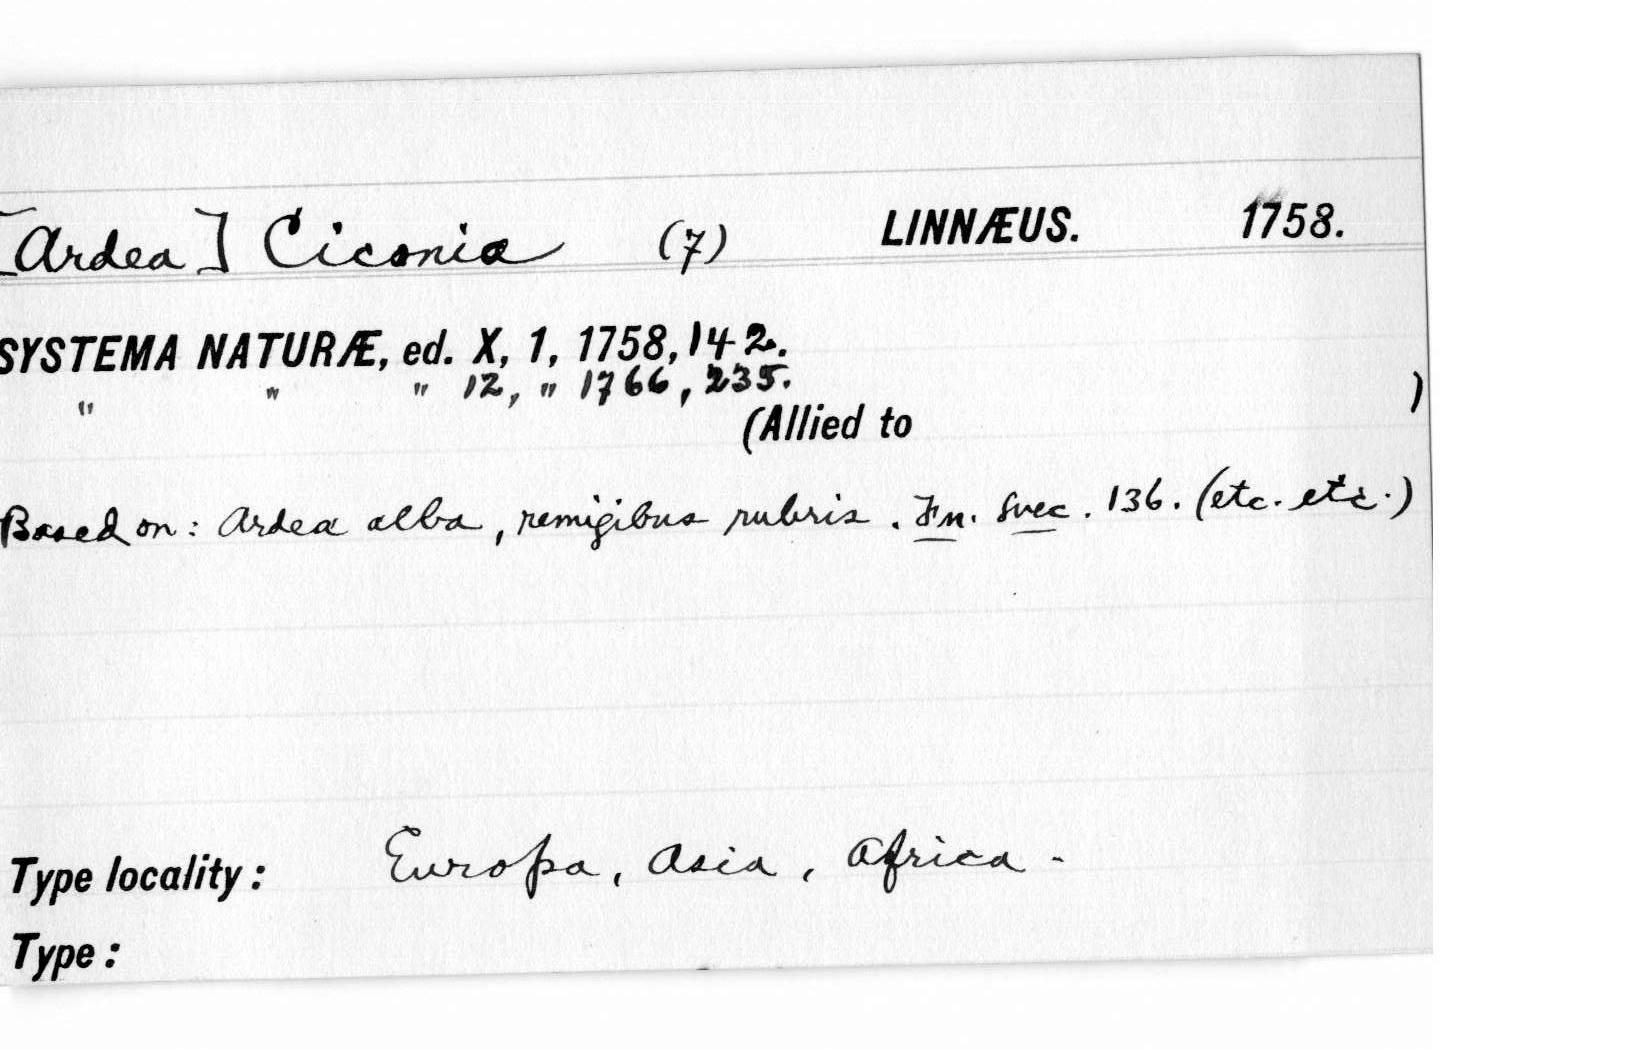 [Ardea] Ciconia (7) LINNÆUS. 1758.
SYSTEMA NATURÆ, ed. X, 1, 1758, 142.
" " " 12, " 1766, 235.
(Allied to )
Based on: Ardea alba, remigibus rubris. Fn. Svec. 136. (etc. etc.)
Type locality: Europa, Asia, Africa -
Type: